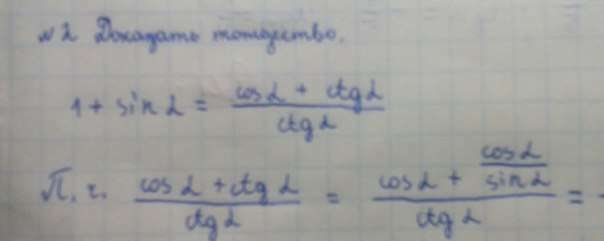 №2 Доказать тождество.
1 + sin α = (cos α + ctg α) / ctg α
П. ч. (cos α + ctg α) / ctg α = (cos α + cos α / sin α) / ctg α =